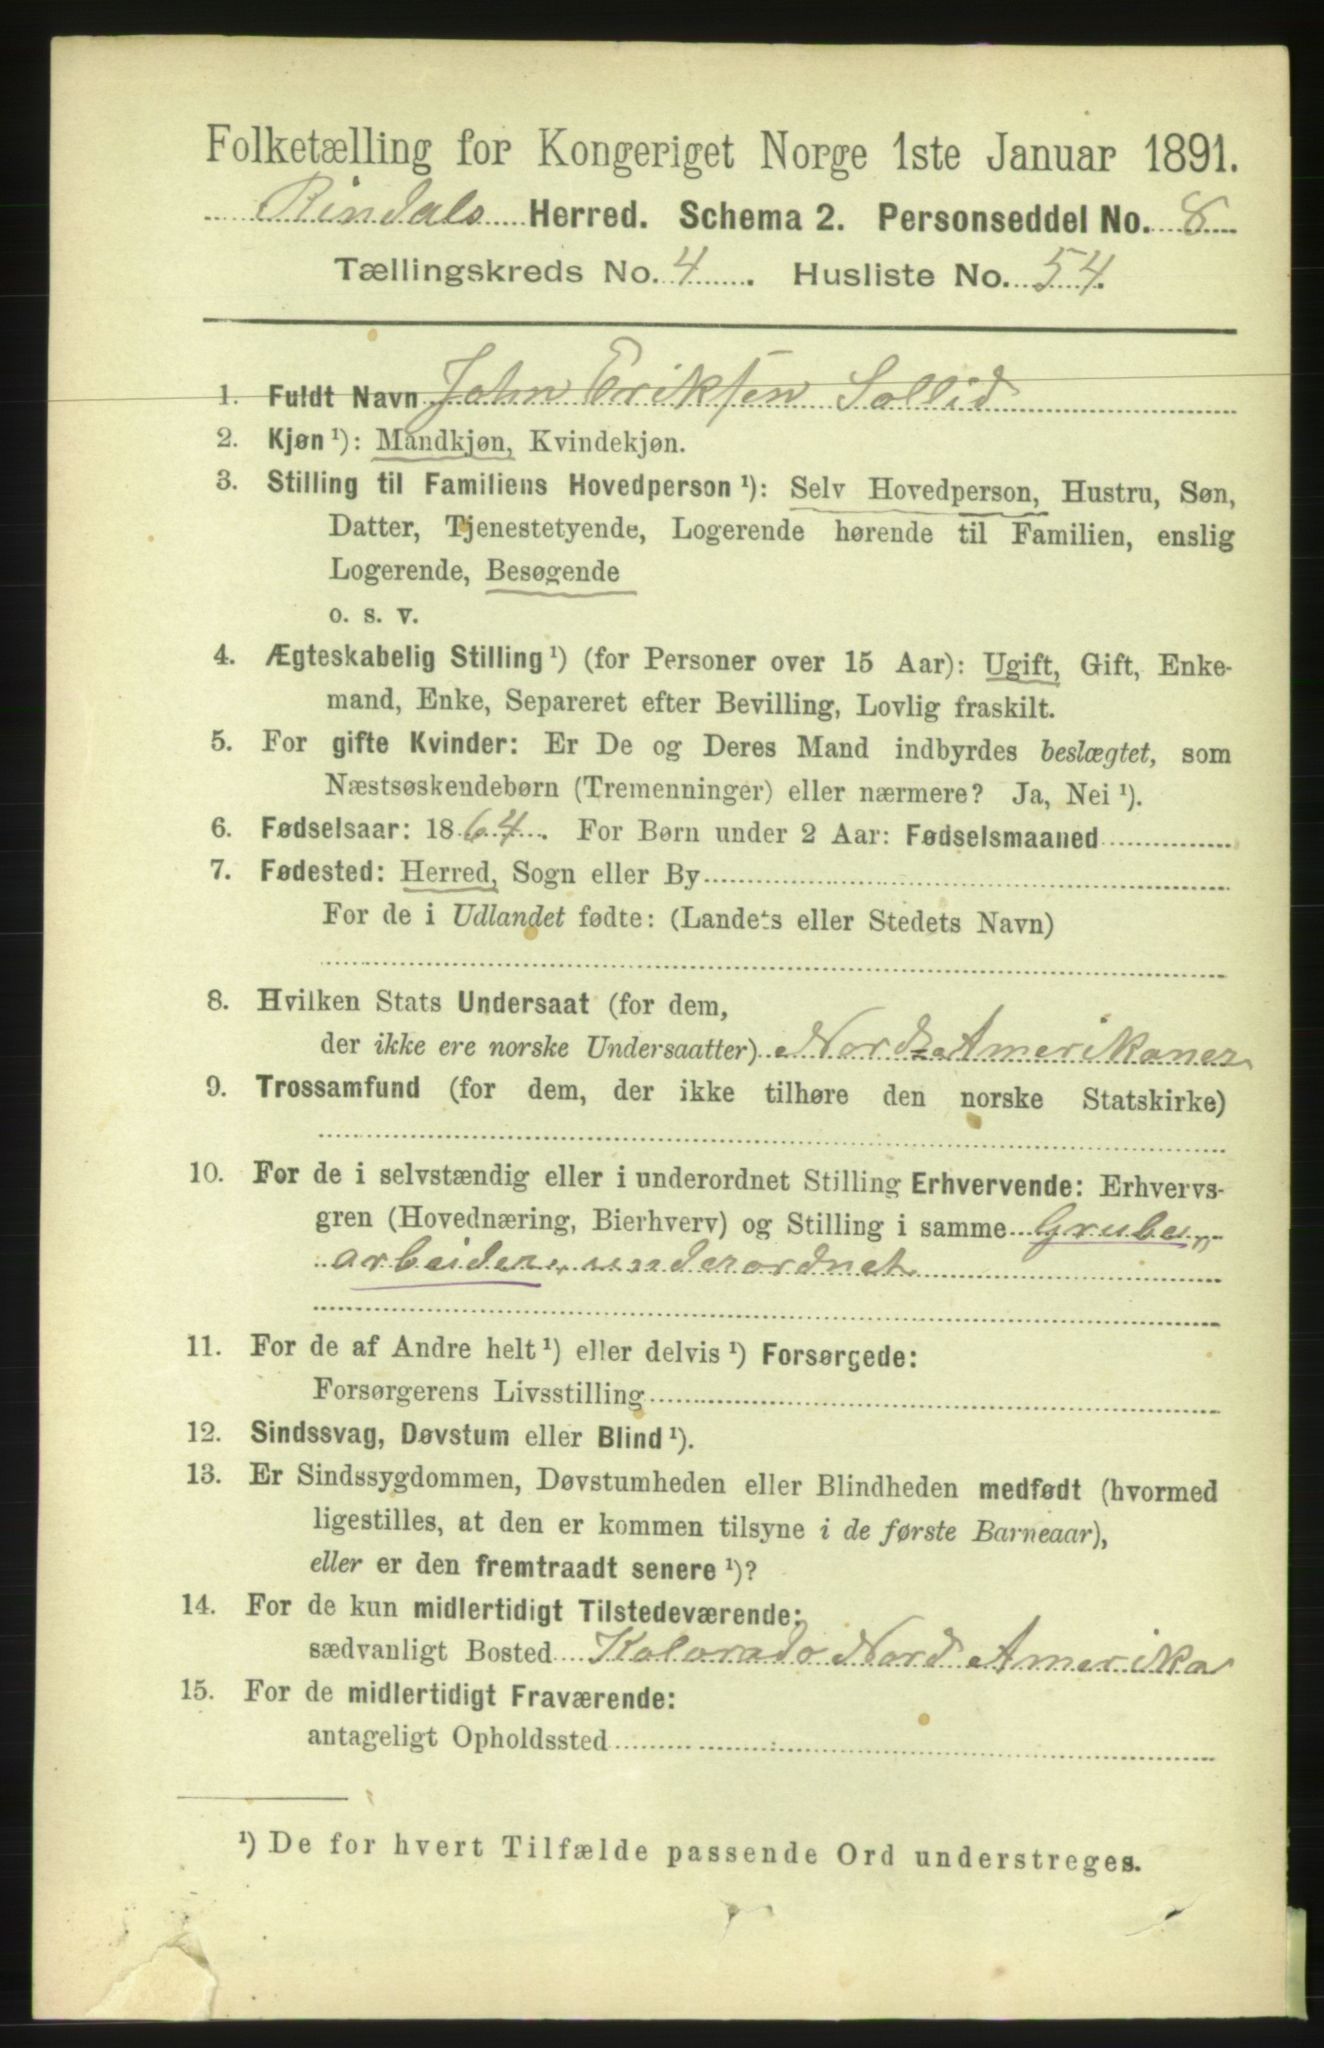 Folketælling for Kongeriget Norge 1ste Januar 1891.
Rindals Herred. Schema 2. Personseddel No. 8
Tællingskreds No. 4. Husliste No. 54.
1. Fuldt Navn John Eriksen Sollid
2. Kjøn ¹): Mandkjøn, Kvindekjøn.
3. Stilling til Familiens Hovedperson ¹): Selv Hovedperson, Hustru, Søn,
Datter, Tjenestetyende, Logerende hørende til Familien, enslig
Logerende, Besøgende
o. s. v.
4. Ægteskabelig Stilling ¹) (for Personer over 15 Aar): Ugift, Gift, Enke-
mand, Enke, Separeret efter Bevilling, Lovlig fraskilt.
5. For gifte Kvinder: Er De og Deres Mand indbyrdes beslægtet, som
Næstsøskendebørn (Tremenninger) eller nærmere? Ja, Nei ¹).
6. Fødselsaar: 1864. For Børn under 2 Aar: Fødselsmaaned
7. Fødested: Herred, Sogn eller By
For de i Udlandet fødte: (Landets eller Stedets Navn)
8. Hvilken Stats Undersaat (for dem,
der ikke ere norske Undersaatter) Nord-Amerikaner
9. Trossamfund (for dem, der ikke tilhøre den norske Statskirke)
10. For de i selvstændig eller i underordnet Stilling Erhvervende: Erhvervs-
gren (Hovednæring, Bierhverv) og Stilling i samme Grube-
arbeider, underordnet
11. For de af Andre helt ¹) eller delvis ¹) Forsørgede:
Forsørgerens Livsstilling
12. Sindssvag, Døvstum eller Blind ¹).
13. Er Sindssygdommen, Døvstumheden eller Blindheden medfødt (hvormed
ligestilles, at den er kommen tilsyne i de første Barneaar),
eller er den fremtraadt senere ¹)?
14. For de kun midlertidigt Tilstedeværende:
sædvanligt Bosted Kolorado Nord Amerika
15. For de midlertidigt Fraværende:
antageligt Opholdssted
¹) De for hvert Tilfælde passende Ord understreges.